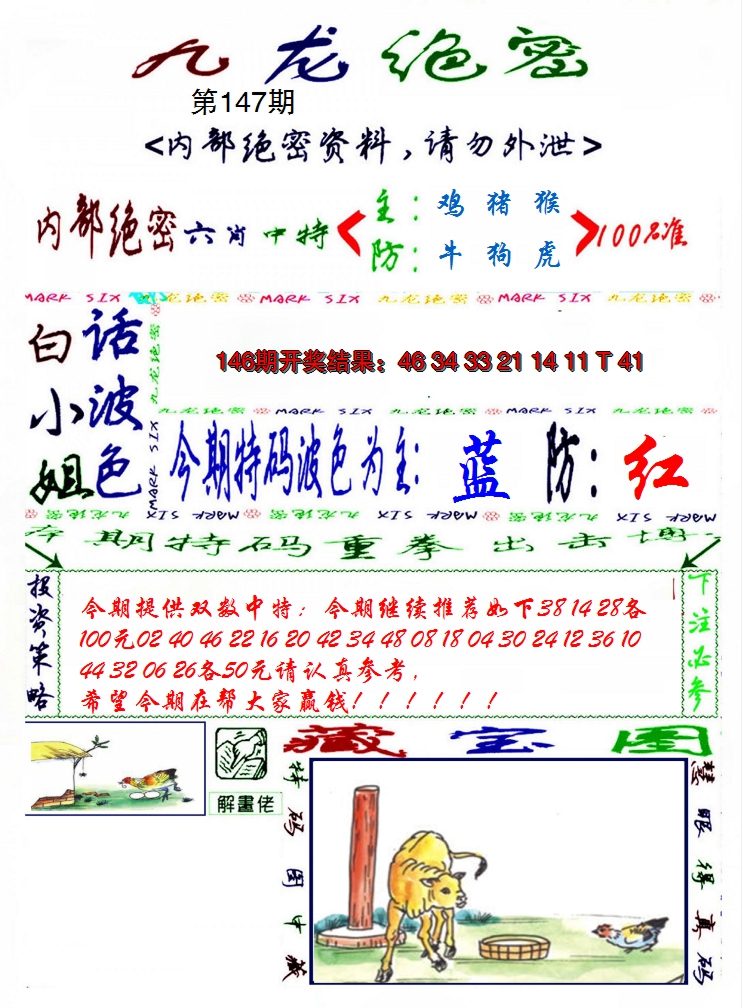 九龙绝密
第147期
<内部绝密资料,请勿外泄>
内部绝密六肖中特
主:鸡猪猴
防:牛狗虎
100%准
MARK SIX 九龙绝密 MARK SIX 九龙绝密 MARK SIX 九龙绝密
白小姐
话波色
九龙绝密
MARK SIX
146期开奖结果:46 34 33 21 14 11 T 41
九龙绝密 MARK SIX 九龙绝密 MARK SIX 九龙绝密
今期特码波色为主:蓝 防:红
九龙绝密 MARK SIX 九龙绝密 MARK SIX 九龙绝密 MARK SIX
本期特码重拳出击博
投资策略
今期提供双数中特;今期继续推荐如下38 14 28各
100元02 40 46 22 16 20 42 34 48 08 18 04 30 24 12 36 10
44 32 06 26各50元请认真参考,
希望今期在帮大家赢钱!!!!!!
下注必参
解畫佬
藏宝图
特码图中藏
慧眼得真码